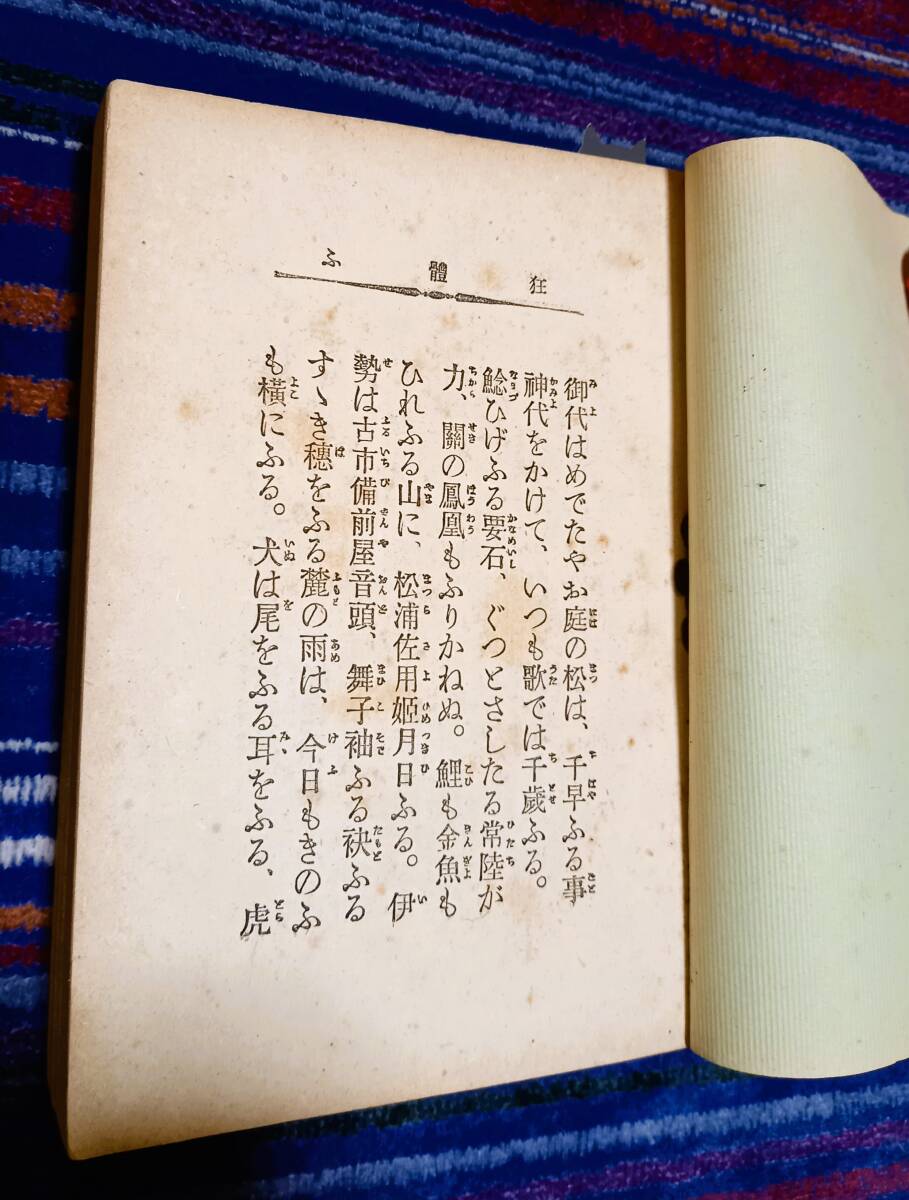 狂體ふ
御代はめでたやお庭の松は、千早ふる事
神代をかけて、いつも歌では千歲ふる。
鯰ひげふる要石、ぐつとさしたる常陸が
力、關の鳳凰もふりかねぬ。鯉も金魚も
ひれふる山に、松浦佐用姬月日ふる。伊
勢は古市備前屋音頭、舞子袖ふる袂ふる
すゝき穗をふる麓の雨は、今日もきのふ
も橫にふる。犬は尾をふる耳をふる、虎